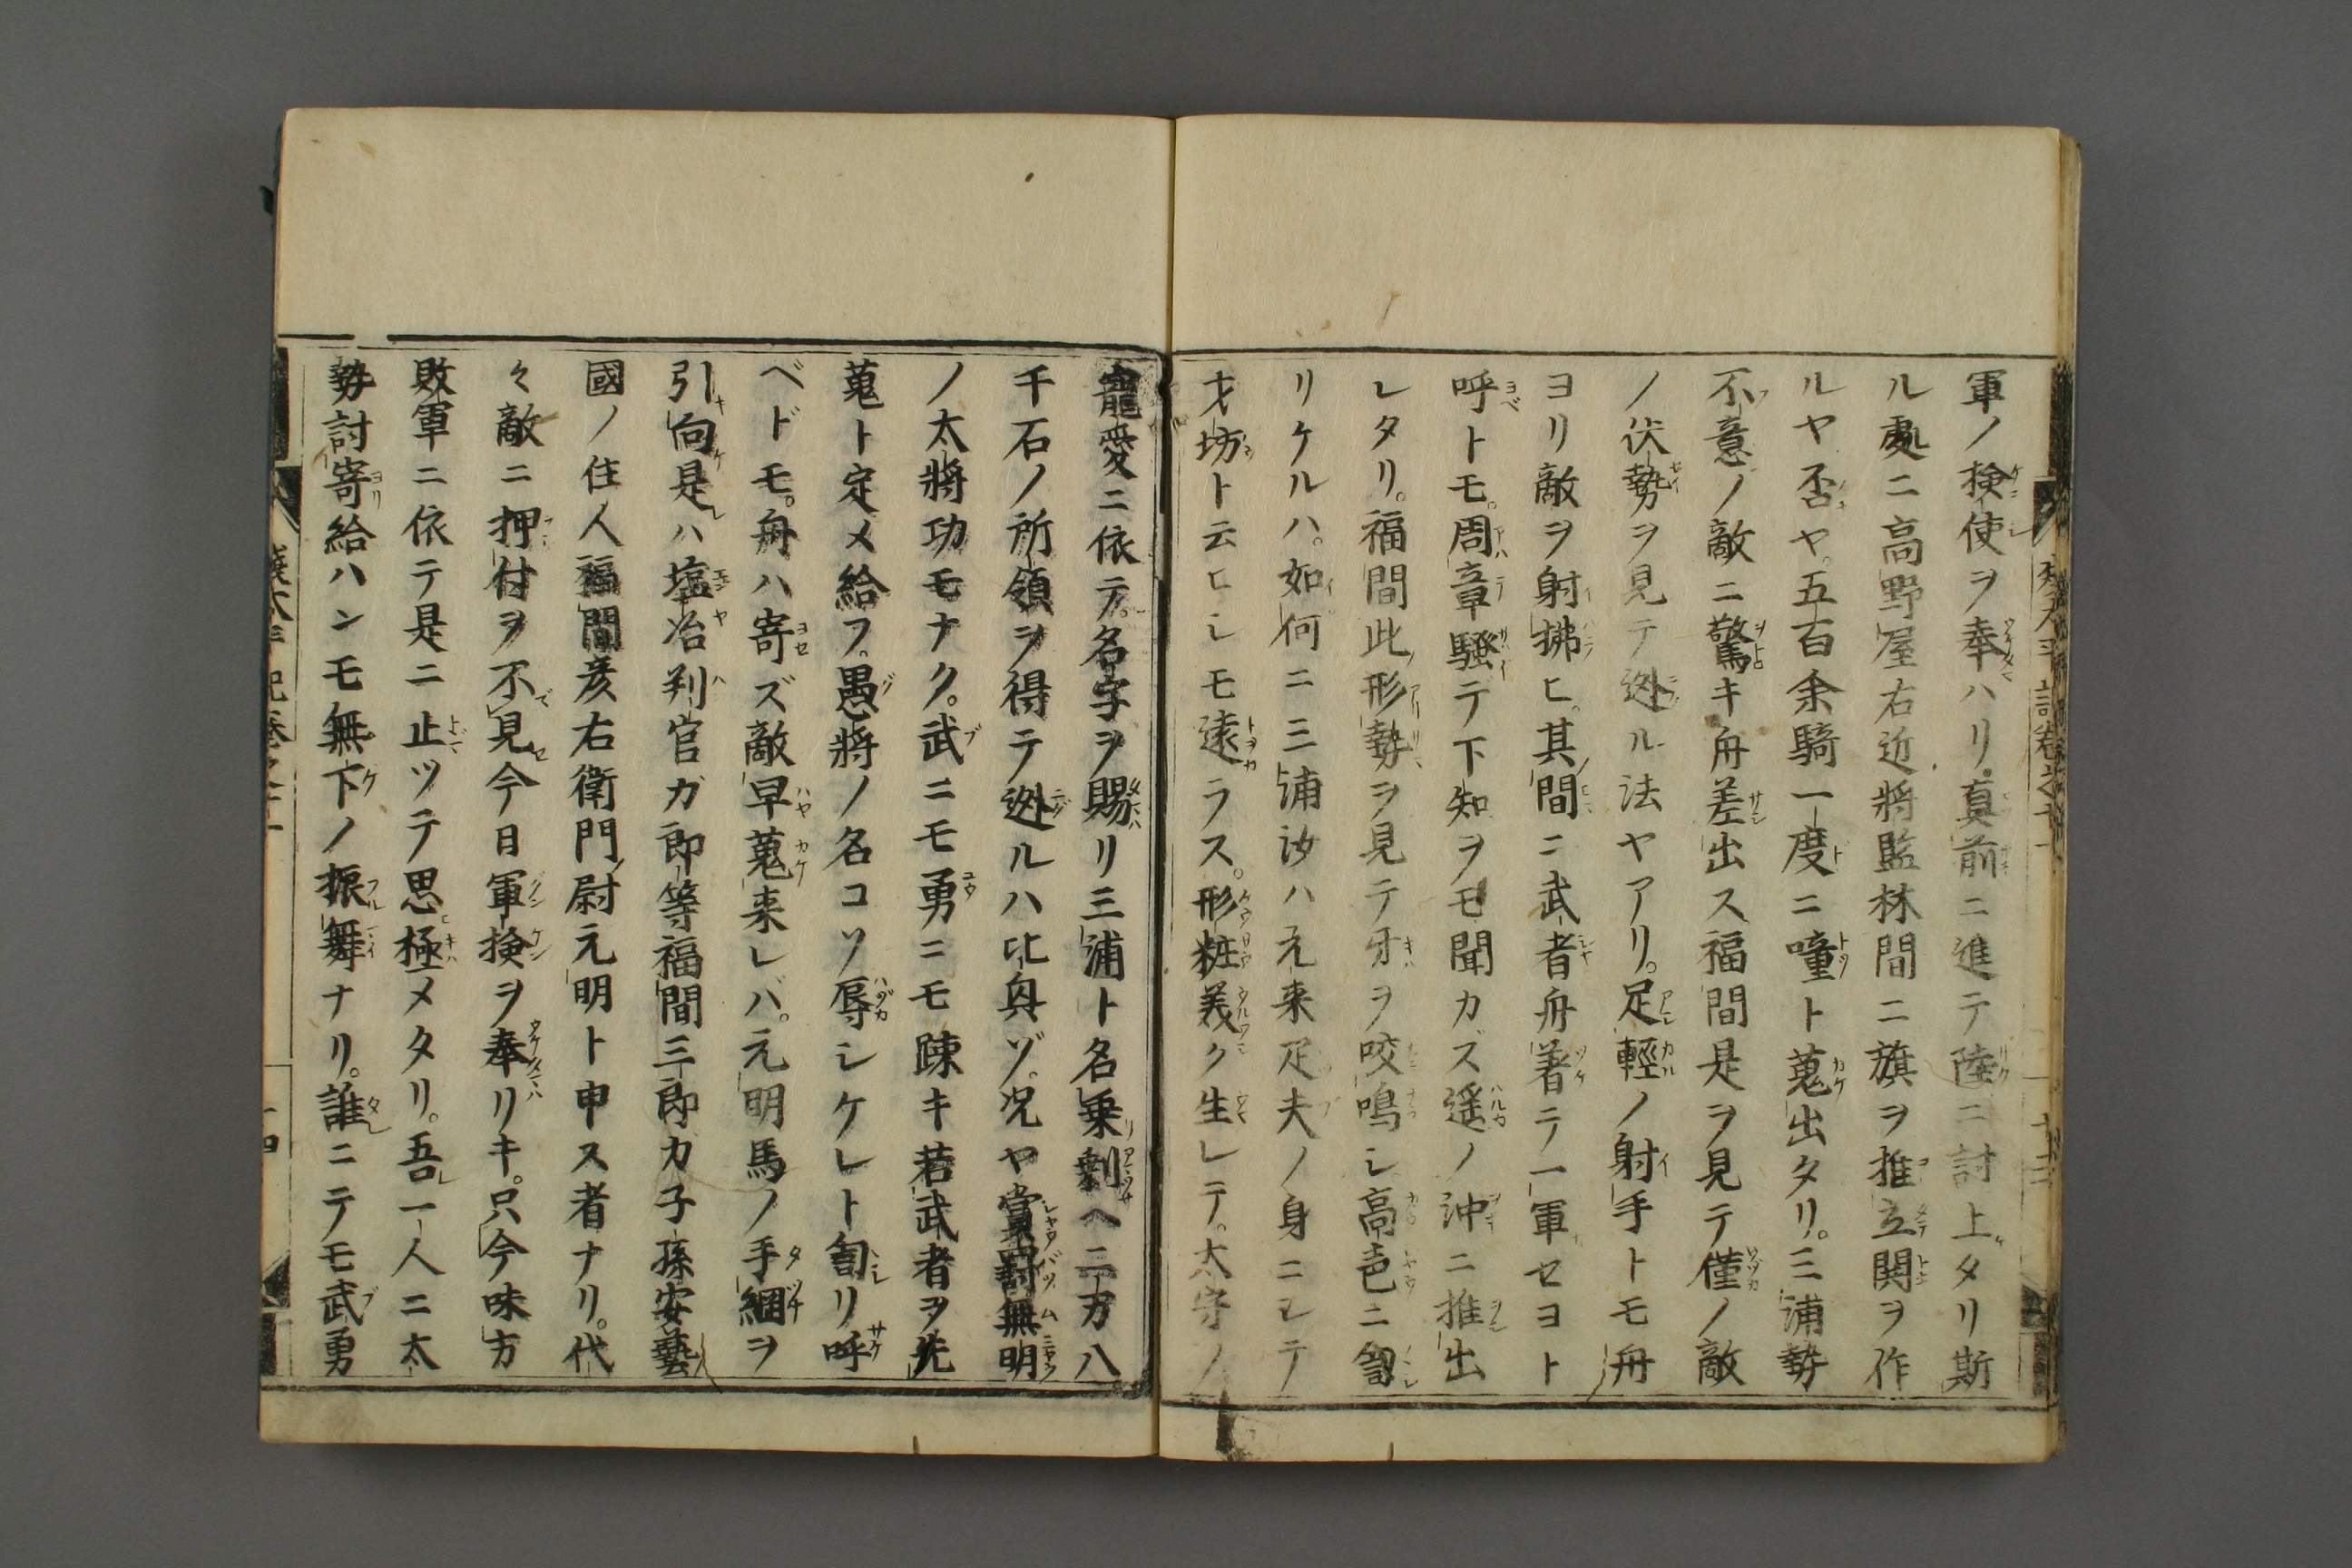 軍ノ検使ヲ奉ハリ真前ニ進テ陸ニ討上タリ斯
ル處ニ高野屋右近將監林間ニ旗ヲ推立関ヲ作
ルヤ否ヤ。五百余騎一度ニ噇ト蒐出タリ。三浦勢
不意ノ敵ニ驚キ舟差出ス福間是ヲ見テ僅ノ敵
ノ伏勢ヲ見テ迯ル法ヤアリ。足輕ノ射手トモ舟
ヨリ敵ヲ射拂ヒ。其間ニ武者舟着テ一軍セヨト
呼トモ。周章騒テ下知ヲモ聞カズ遥ノ沖ニ推出
レタリ。福間此形勢ヲ見テ牙ヲ咬鳴シ高色ニ訇
リケルハ。如何ニ三浦汝ハ元来疋夫ノ身ニシテ
才坊ト云ヒシモ遠ラス。形粧義ク生レテ。太守ノ
寵愛ニ依テ。名字ヲ賜リ三浦ト名乗剰ヘ二万八
千石ノ所領ヲ得テ迯ルハ比興ゾ。况ヤ賞罰無明
ノ太將功モナク。武ニモ勇ニモ踈キ若武者ヲ先
蒐ト定メ給フ。愚將ノ名コソ辱シケレト訇リ呼
ベドモ。舟ハ寄ズ敵早蒐来レバ。元明馬ノ手綱ヲ
引向是ハ塩冶判官ガ郎等福間三郎カ子孫安藝
國ノ住人福間彦右衛門尉元明ト申ス者ナリ。代
々敵ニ押付ヲ不見今日軍検ヲ奉リキ。只今味方
敗軍ニ依テ是ニ止ツテ思極メタリ。吾一人ニ太
勢討寄給ハンモ無下ノ振舞ナリ。誰ニテモ武勇